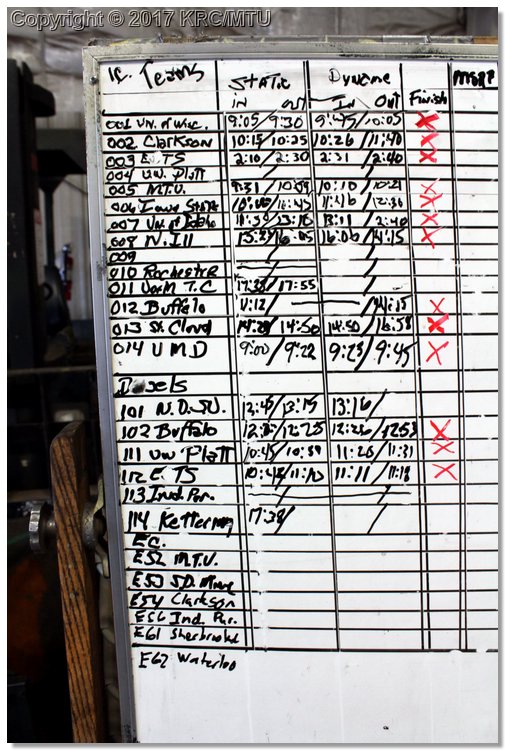 Copyright © 2017 KRC/MTU
Ic Teams STATIC Dyname Finish MSRP
IN OUT IN OUT
001 Un. of Wisc. 9:05/9:30 9:45/10:05 X
002 Clarkson 10:15/10:25 10:26/11:40 X
003 E.TS 2:10/2:30 2:31/2:40 X
004 U.W. Platt
005 M.T.U. 9:31/10:09 10:10/10:21 X
006 Iowa State /11:45 X
007 Un. of Idaho X
008 N. Ill /16:05 16:06/ X
009
010 Rochester
011 U of M T.C /17:55
012 Buffalo X
013 St. Cloud 14:28/14:50 14:50/16:58 X
014 U M D 9:00/9:22 9:23/9:45 X
Diesels
101 N.D.SU. 12:45/13:15 13:16/
102 Buffalo /12:25 12:26/1253 X
111 UW Platt 10:45/10:59 11:20/11:31 X
112 E. TS 11:11/11:18 X
113 Ind. Pur.
114 Kettering 17:38/
EC.
E52 M.T.U.
E53 S.D. Mines
E54 Clarkson
E56 Ind. Pur.
E61 Sherbrooke
E62 Waterloo